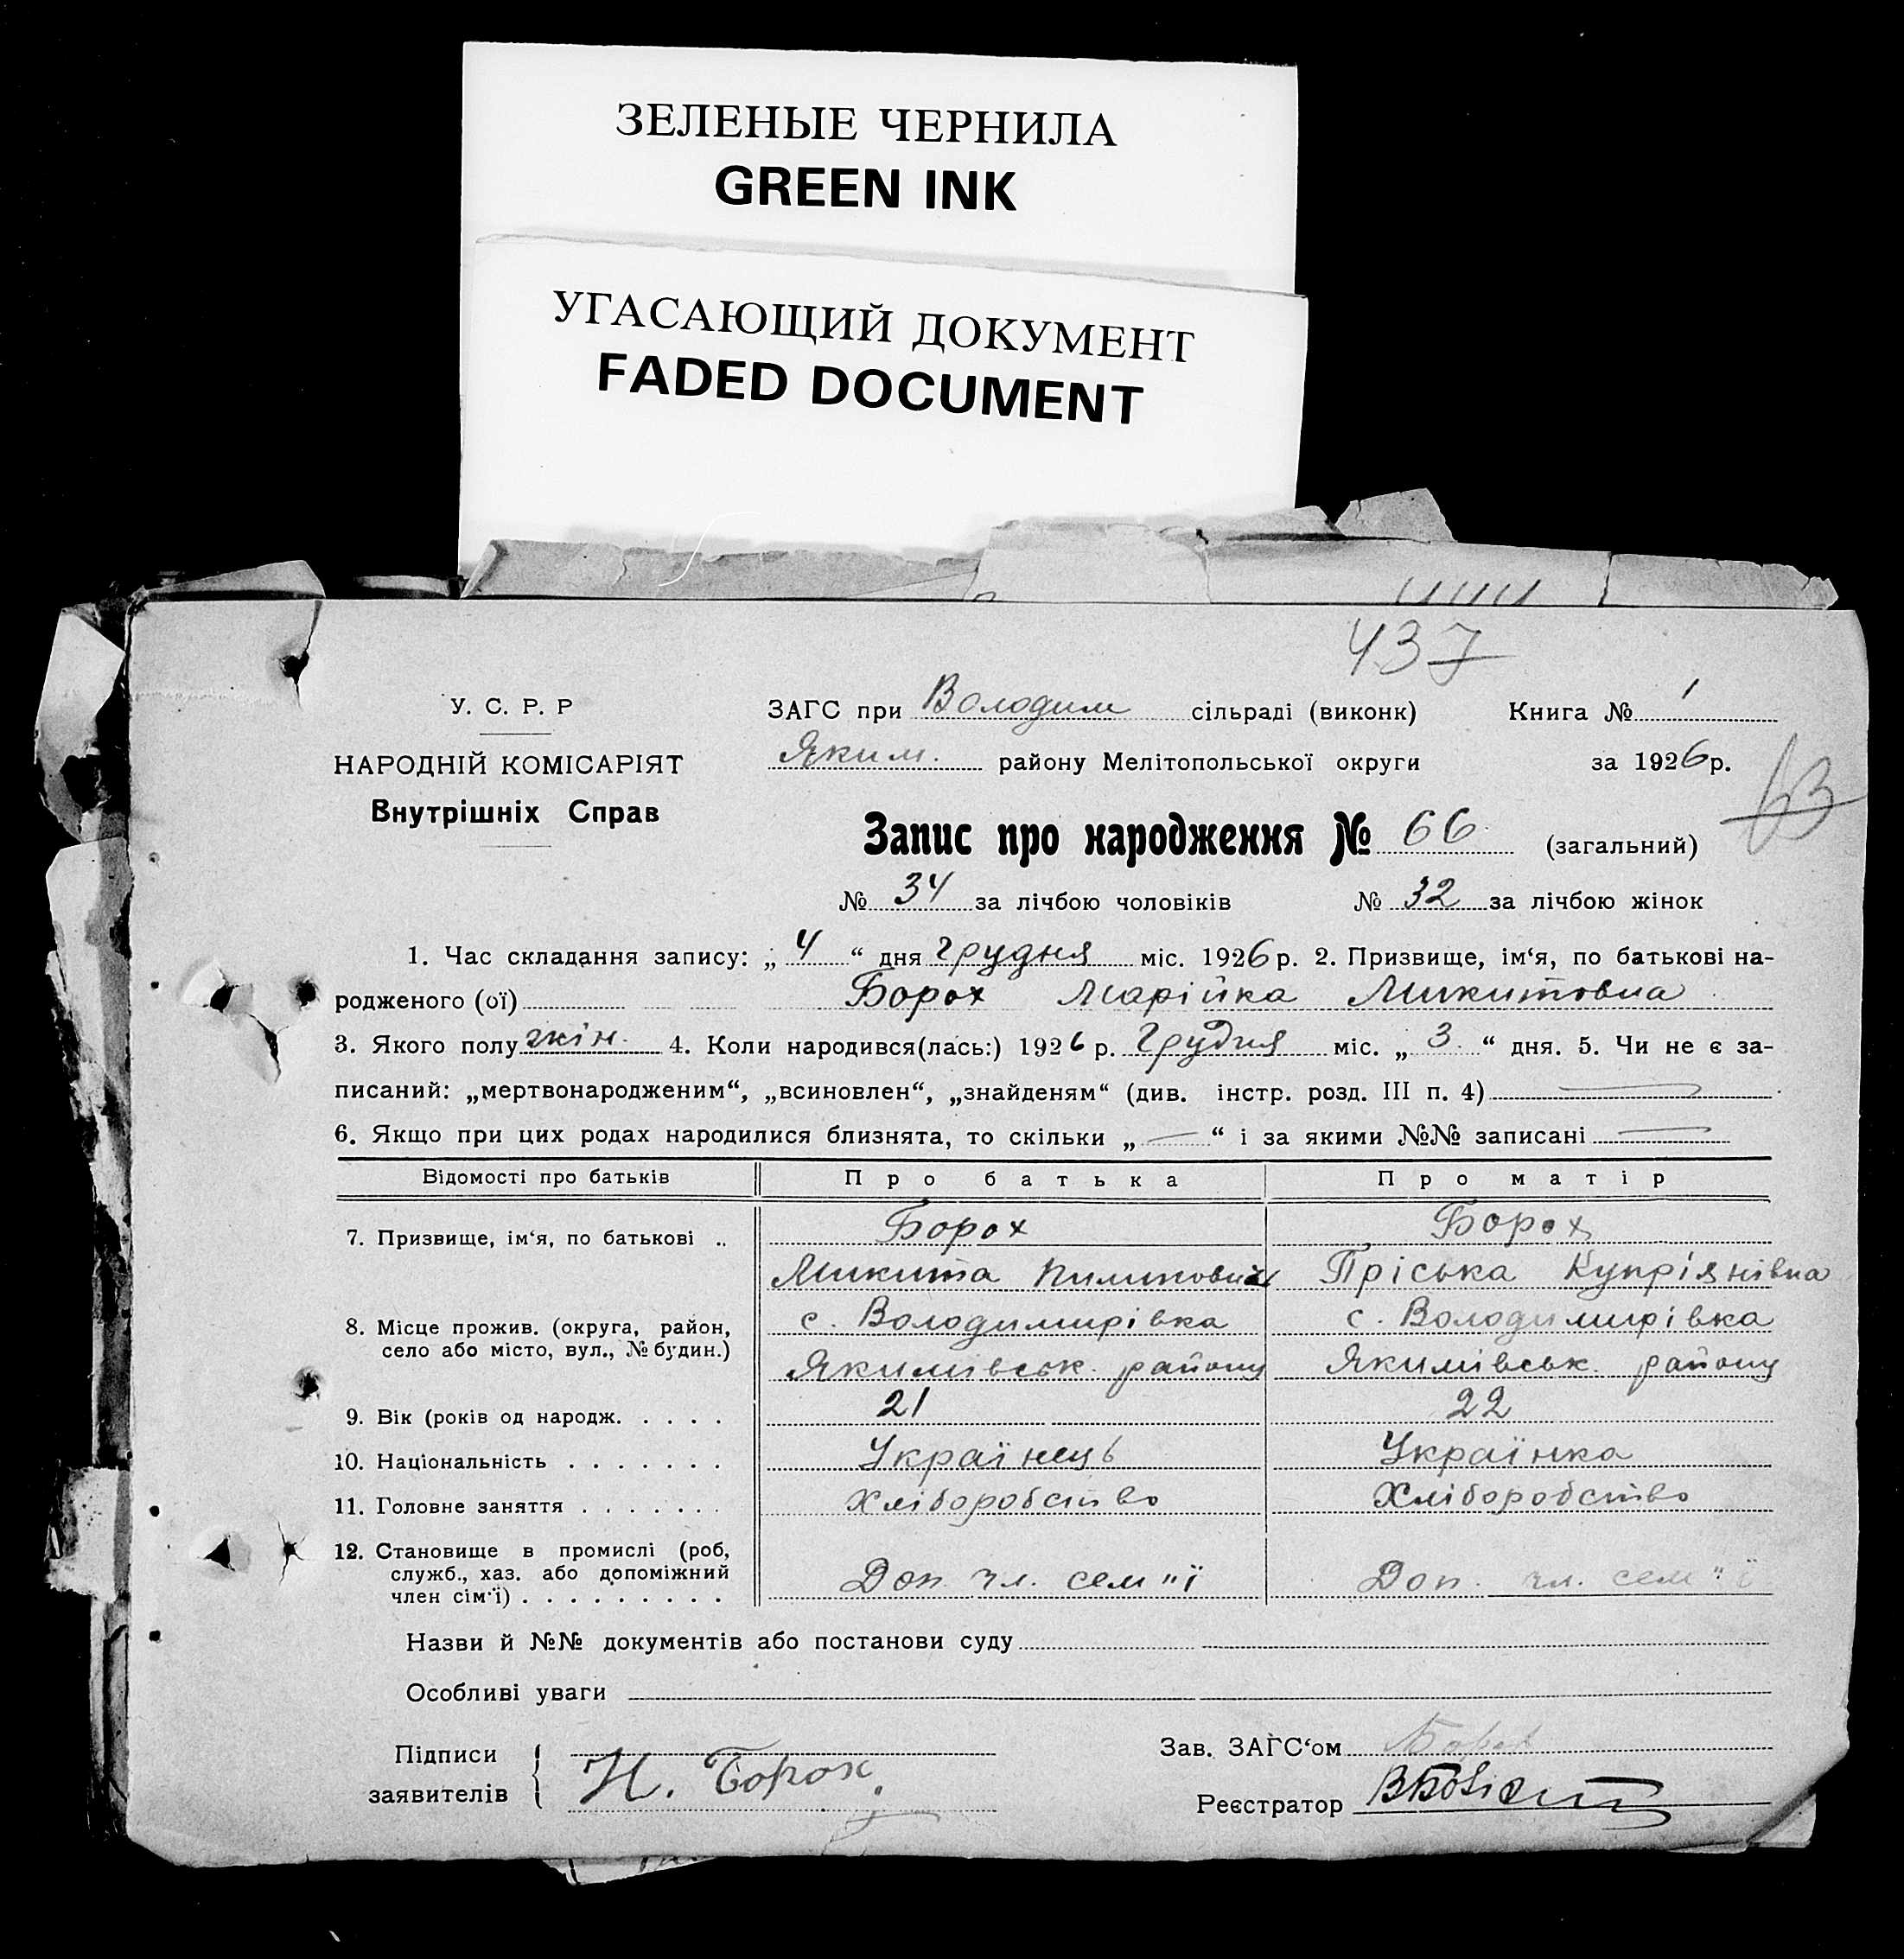 ЗЕЛЕНЫЕ ЧЕРНИЛА
GREEN INK
УГАСАЮЩИЙ ДОКУМЕНТ
FADED DOCUMENT
437
У. С. Р. Р
НАРОДНІЙ КОМІСАРІЯТ
Внутрішніх Справ
ЗАГС при Володим сільраді (виконк) Книга № 1
Яким. району Мелітопольської округи за 1926 р.
63
Запис про народження № 66 (загальний)
№ 34 за лічбою чоловіків № 32 за лічбою жінок
1. Час складання запису: „ 4 “ дня грудня міс. 1926 р. 2. Призвище, ім‘я, по батькові на-
родженого (ої) Борох Марійка Микитовна
3. Якого полу жін. 4. Коли народився(лась:) 1926 р. Грудня міс. „ 3. “ дня. 5. Чи не є за-
писаний: „мертвонародженим“, „всиновлен“, „знайденям“ (див. інстр. розд. III п. 4)
6. Якщо при цих родах народилися близнята, то скільки „ — “ і за якими №№ записані —
Відомості про батьків Про батька Про матір
7. Призвище, ім‘я, по батькові .. Борох Борох
Микита Пріська Купріянівна
8. Місце прожив. (округа, район, с. Володимирівка с. Володимирівка
село або місто, вул., № будин.) Якимівськ. району Якимівськ. району
9. Вік (років од народж. . . . . 21 22
10. Національність . . . . . . . Українець Українка
11. Головне заняття . . . . . . . Хліборобство Хліборобство
12. Становище в промислі (роб,
служб., хаз. або допоміжний Доп чл. сем"ї Доп. чл. сем"ї
член сім‘ї) . . . . . . . . .
Назви й №№ документів або постанови суду
Особливі уваги
Підписи Зав. ЗАГС‘ом
заявителів Н. Борох Реєстратор